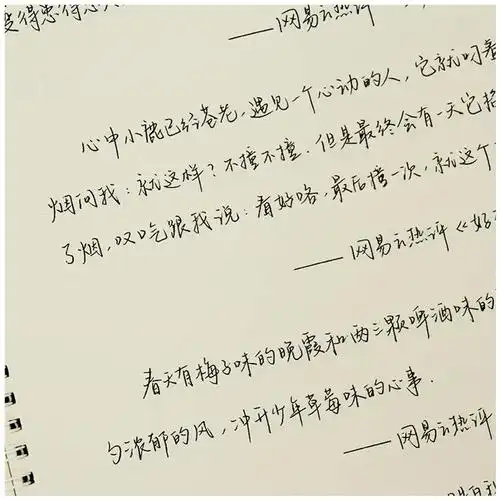 得患得患
——网易云热评
心中小鹿已经苍老，遇见一个心动的人，它就叼着
烟问我：就这样？不撞不撞．但是最终会有一天它掐
了烟，叹口气跟我说：看好咯，最后撞一次，就这个
——网易云热评《好
春天有梅子味的晚霞和两三颗啤酒味的
匀浓郁的风，冲开少年草莓味的心事．
——网易云热评